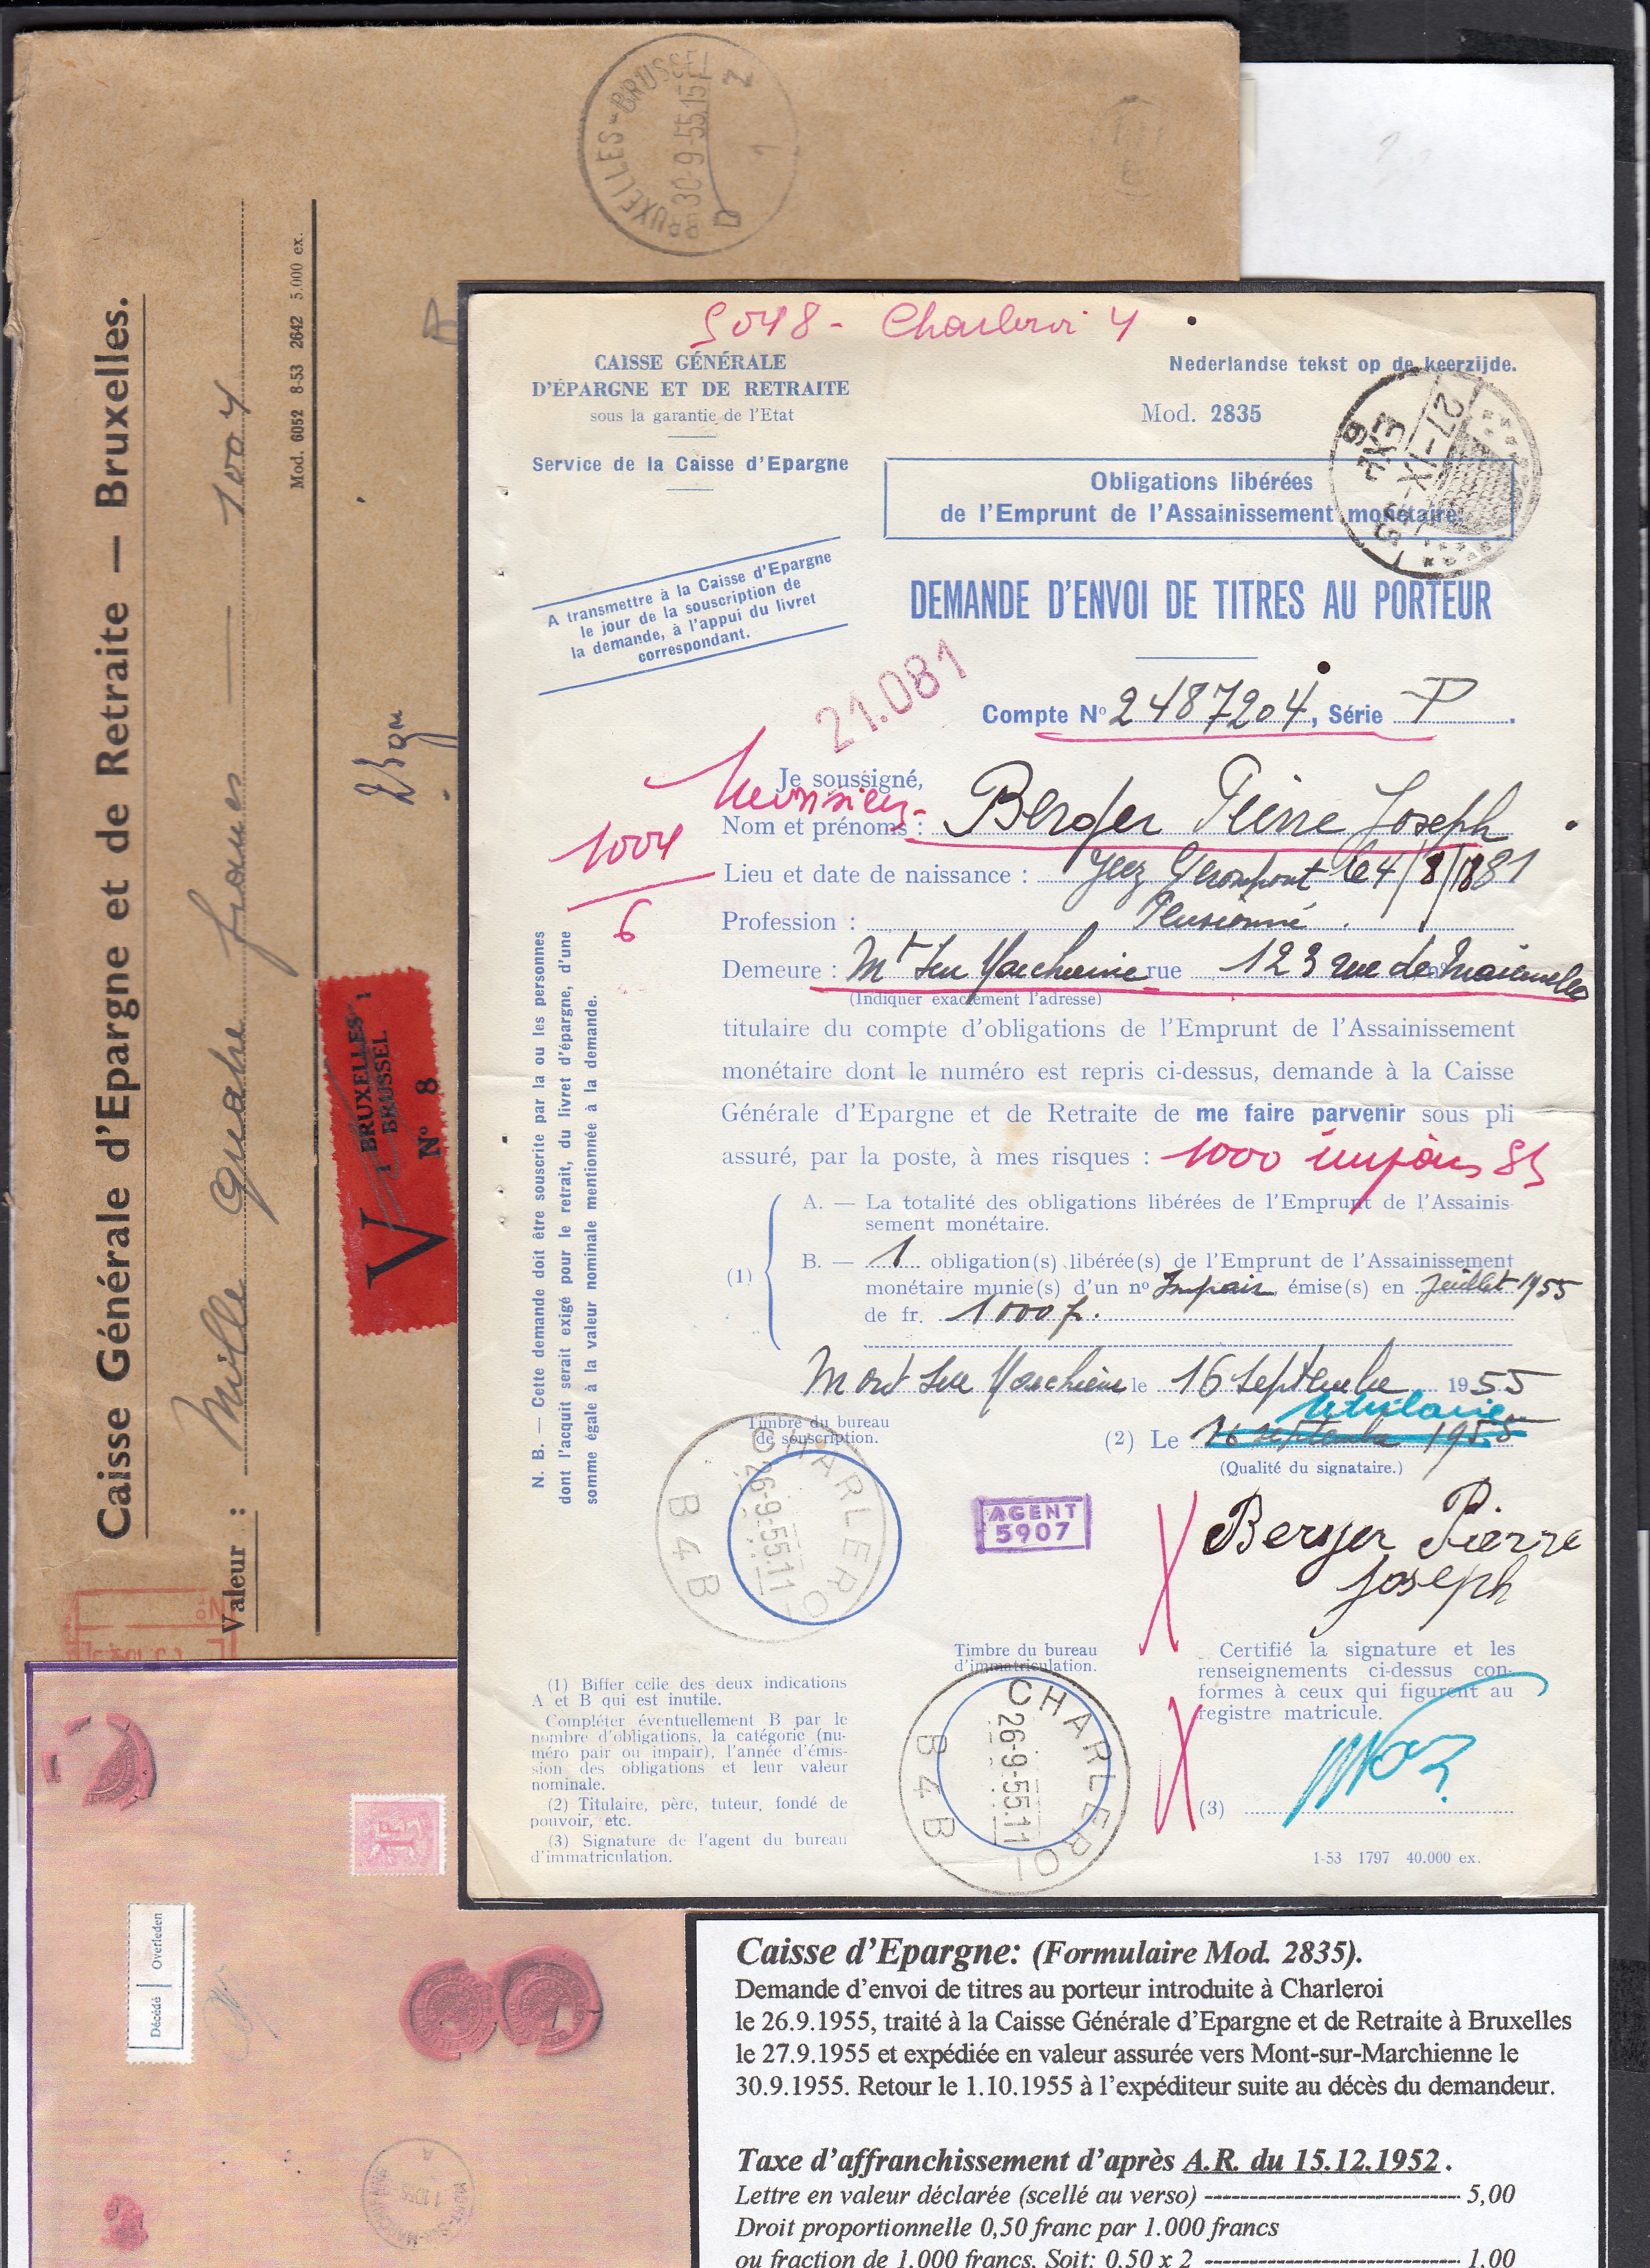 BRUXELLES-BRUSSEL
30-9-55.15
D
1
Caisse Générale d'Epargne et de Retraite — Bruxelles.
Valeur : Mille quatre francs — 1004
Mod. 6052 8-53 2642 5.000 ex.
1 BRUXELLES 1
BRUSSEL
V N° 8
5048 - Charleroi 4
CAISSE GÉNÉRALE
D'ÉPARGNE ET DE RETRAITE
sous la garantie de l'Etat
Service de la Caisse d'Epargne
Nederlandse tekst op de keerzijde.
Mod. 2835
27-IX-55
Obligations libérées
de l'Emprunt de l'Assainissement monétaire.
A transmettre à la Caisse d'Epargne
le jour de la souscription de
la demande, à l'appui du livret
correspondant.
DEMANDE D'ENVOI DE TITRES AU PORTEUR
21.081
Compte N° 2487204, Série P
Je soussigné,
Monsieur
Nom et prénoms : Berger Pierre Joseph
1004
6
Lieu et date de naissance : Jeez Gerompont le 4/8/1881
Profession : Pensionné.
Demeure : Mt sur Marchienne rue 123 rue de Marcinelle
(Indiquer exactement l'adresse)
titulaire du compte d'obligations de l'Emprunt de l'Assainissement
monétaire dont le numéro est repris ci-dessus, demande à la Caisse
Générale d'Epargne et de Retraite de me faire parvenir sous pli
assuré, par la poste, à mes risques : 1000 impair
(1)
A. — La totalité des obligations libérées de l'Emprunt de l'Assainis-
sement monétaire.
B. — 1 obligation(s) libérée(s) de l'Emprunt de l'Assainissement
monétaire munie(s) d'un n° Impair émise(s) en Juillet 1955
de fr. 1000 f.
N. B. — Cette demande doit être souscrite par la ou les personnes
dont l'acquit serait exigé pour le retrait, du livret d'épargne, d'une
somme égale à la valeur nominale mentionnée à la demande.
Mont sur Marchienne le 16 septembre 1955
Timbre du bureau
de souscription.
titulaire
(2) Le 16 septembre 1955
(Qualité du signataire.)
CHARLEROI
26-9-55.11
B 4 B
AGENT
5907
Berger Pierre
Joseph
Timbre du bureau
d'immatriculation.
CHARLEROI
26-9-55.11
B 4 B
Certifié la signature et les
renseignements ci-dessus con-
formes à ceux qui figurent au
registre matricule.
(3)
(1) Biffer celle des deux indications
A et B qui est inutile.
Compléter éventuellement B par le
nombre d'obligations, la catégorie (nu-
méro pair ou impair), l'année d'émis-
sion des obligations et leur valeur
nominale.
(2) Titulaire, père, tuteur, fondé de
pouvoir, etc.
(3) Signature de l'agent du bureau
d'immatriculation.
1-53 1797 40.000 ex.
1F
Décédé Overleden
Caisse d'Epargne: (Formulaire Mod. 2835).
Demande d'envoi de titres au porteur introduite à Charleroi
le 26.9.1955, traité à la Caisse Générale d'Epargne et de Retraite à Bruxelles
le 27.9.1955 et expédiée en valeur assurée vers Mont-sur-Marchienne le
30.9.1955. Retour le 1.10.1955 à l'expéditeur suite au décès du demandeur.
Taxe d'affranchissement d'après A.R. du 15.12.1952.
Lettre en valeur déclarée (scellé au verso) ---------------------------- 5,00
Droit proportionnelle 0,50 franc par 1.000 francs
ou fraction de 1.000 francs. Soit: 0,50 x 2 ---------------------------- 1,00